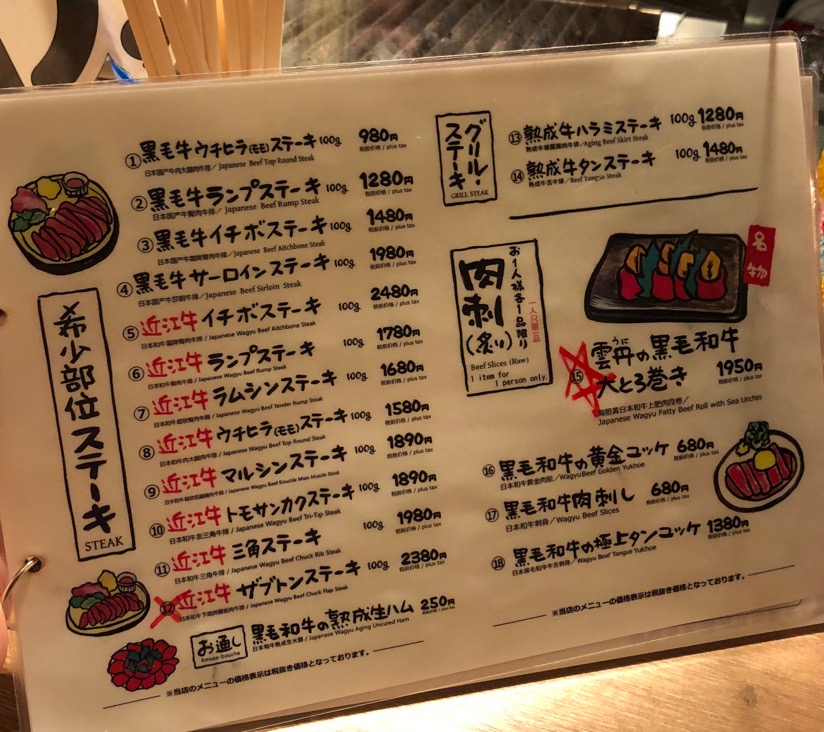 希少部位ステーキ
STEAK
① 黒毛牛ウチヒラ(モモ)ステーキ 100g 980円
日本国产牛内大腿肉牛排/ Japanese Beef Top Round Steak 税前价格 / plus tax
② 黒毛牛ランプステーキ 100g 1280円
日本国产牛臀肉牛排/ Japanese Beef Rump Steak 税前价格 / plus tax
③ 黒毛牛イチボステーキ 100g 1480円
Japanese Beef Aitchbone Steak 税前价格 / plus tax
④ 黒毛牛サーロインステーキ 100g 1980円
Japanese Beef Sirloin Steak 税前价格 / plus tax
⑤ 近江牛イチボステーキ 100g 2480円
Japanese Wagyu Beef Aitchbone Steak 税前价格 / plus tax
⑥ 近江牛ランプステーキ 100g 1780円
日本和牛臀肉牛排 / Japanese Wagyu Beef Rump Steak 税前价格 / plus tax
⑦ 近江牛ラムシンステーキ 100g 1680円
Japanese Wagyu Beef Tender Rump Steak 税前价格 / plus tax
⑧ 近江牛ウチヒラ(モモ)ステーキ 100g 1580円
日本和牛内大腿肉牛排 / Japanese Wagyu Beef Top Round Steak 税前价格 / plus tax
⑨ 近江牛マルシンステーキ 100g 1890円
Japanese Wagyu Beef Knuckle Main Muscle Steak 税前价格 / plus tax
⑩ 近江牛トモサンカクステーキ 100g 1890円
日本和牛友三角牛排 / Japanese Wagyu Beef Tri-Tip Steak 税前价格 / plus tax
⑪ 近江牛三角ステーキ 100g 1980円
日本和牛三角牛排 / Japanese Wagyu Beef Chuck Rib Steak 税前价格 / plus tax
⑫ 近江牛ザブトンステーキ 100g 2380円
Japanese Wagyu Beef Chuck Flap Steak 税前价格 / plus tax
お通し
Amuse-bouche
黒毛和牛の熟成生ハム 250円
日本和牛熟成生火腿 / Japanese Wagyu Aging Uncured Ham 税前价格 / plus tax
※当店のメニューの価格表示は税抜き価格となっております。
グリル・
ステーキ
GRILL STEAK
⑬ 熟成牛ハラミステーキ 100g 1280円
熟成牛横膈膜肉牛排/Aging Beef Skirt Steak 税前价格 / plus tax
⑭ 熟成牛タンステーキ 100g 1480円
熟成牛舌牛排/Beef Tongue Steak 税前价格 / plus tax
お1人様各1品限り
肉刺(炙り)
一人只限一品
Beef Slices (Raw)
1 item for
1 person only
名物
⑮ 雲丹の黒毛和牛
うに
大とろ巻き 1950円
海胆黄日本和牛上肥肉段卷/ 税前价格 / plus tax
Japanese Wagyu Fatty Beef Roll with Sea Urchin
⑯ 黒毛和牛の黄金ユッケ 680円
日本和牛黄金肉脍/WagyuBeef Golden Yukhoe 税前价格 / plus tax
⑰ 黒毛和牛肉刺し 680円
日本和牛刺身/Wagyu Beef Slices 税前价格 / plus tax
⑱ 黒毛和牛の極上タンユッケ 1380円
日本黒毛和牛牛舌刺身/Wagyu Beef Tongue Yukhoe 税前价格 / plus tax
※当店のメニューの価格表示は税抜き価格となっております。